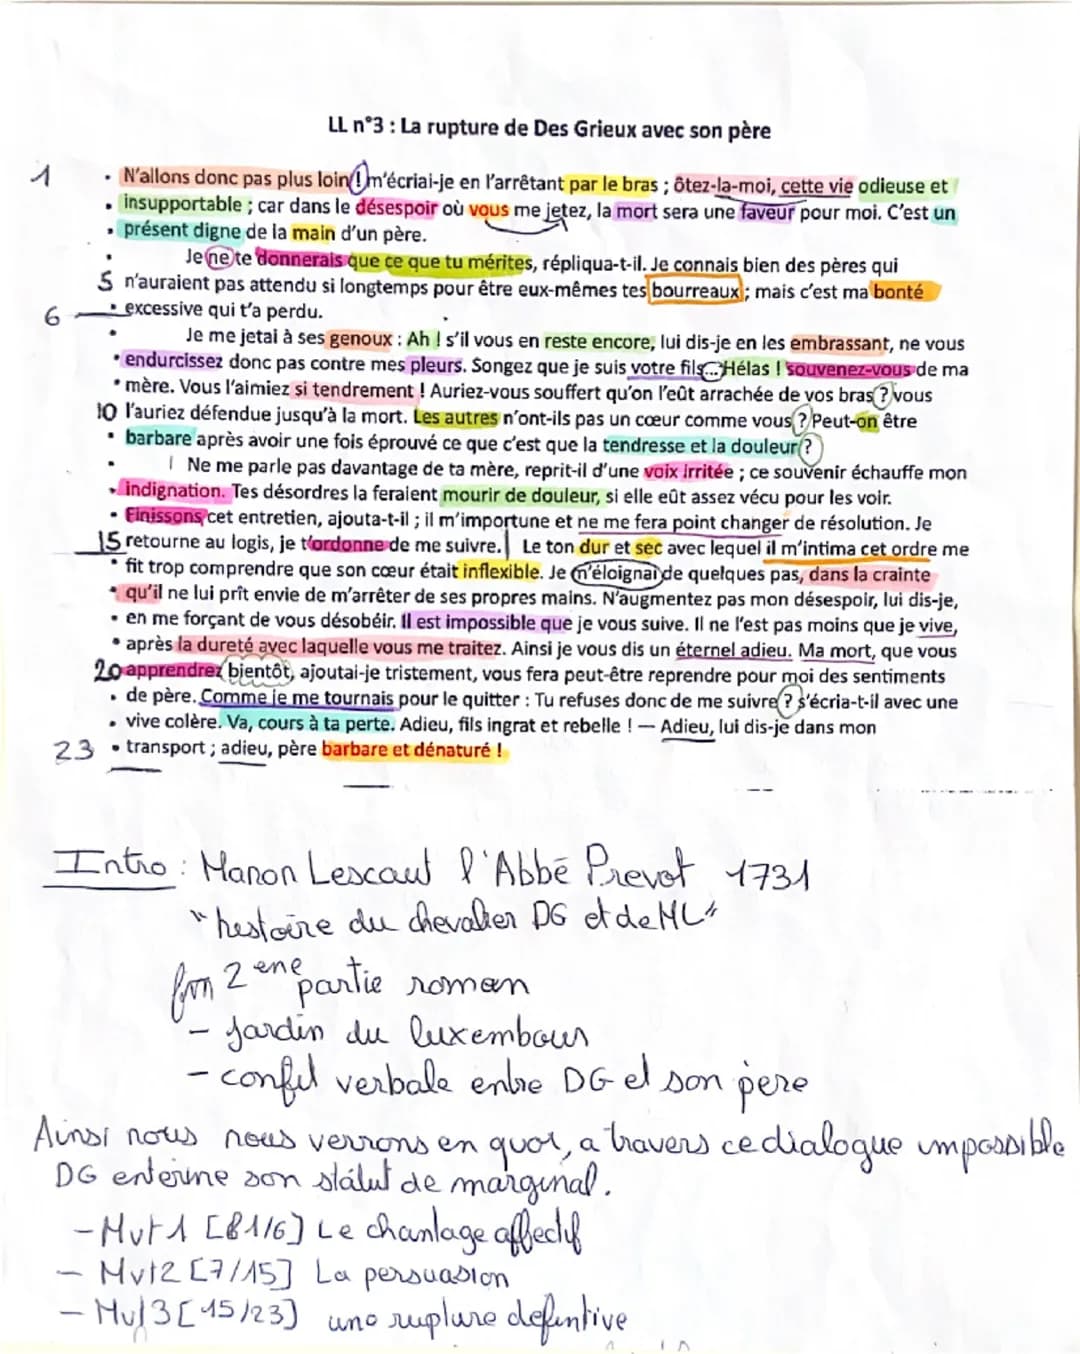 LL n°3 : La rupture de Des Grieux avec son père
1 N'allons donc pas plus loin ! m'écriai-je en l'arrêtant par le bras ; ôtez-la-moi, cette vie odieuse et
insupportable ; car dans le désespoir où vous me jetez, la mort sera une faveur pour moi. C'est un
présent digne de la main d'un père.
Je ne te donnerais que ce que tu mérites, répliqua-t-il. Je connais bien des pères qui
5 n'auraient pas attendu si longtemps pour être eux-mêmes tes bourreaux ; mais c'est ma bonté
6 excessive qui t'a perdu.
Je me jetai à ses genoux : Ah ! s'il vous en reste encore, lui dis-je en les embrassant, ne vous
endurcissez donc pas contre mes pleurs. Songez que je suis votre fils... Hélas ! souvenez-vous de ma
mère. Vous l'aimiez si tendrement ! Auriez-vous souffert qu'on l'eût arrachée de vos bras ? vous
10 l'auriez défendue jusqu'à la mort. Les autres n'ont-ils pas un cœur comme vous ? Peut-on être
barbare après avoir une fois éprouvé ce que c'est que la tendresse et la douleur ?
Ne me parle pas davantage de ta mère, reprit-il d'une voix irritée ; ce souvenir échauffe mon
indignation. Tes désordres la feraient mourir de douleur, si elle eût assez vécu pour les voir.
Finissons cet entretien, ajouta-t-il ; il m'importune et ne me fera point changer de résolution. Je
15 retourne au logis, je t'ordonne de me suivre. Le ton dur et sec avec lequel il m'intima cet ordre me
fit trop comprendre que son cœur était inflexible. Je m'éloignai de quelques pas, dans la crainte
qu'il ne lui prît envie de m'arrêter de ses propres mains. N'augmentez pas mon désespoir, lui dis-je,
en me forçant de vous désobéir. Il est impossible que je vous suive. Il ne l'est pas moins que je vive,
après la dureté avec laquelle vous me traitez. Ainsi je vous dis un éternel adieu. Ma mort, que vous
20 apprendrez bientôt, ajoutai-je tristement, vous fera peut-être reprendre pour moi des sentiments
de père. Comme je me tournais pour le quitter : Tu refuses donc de me suivre ? s'écria-t-il avec une
vive colère. Va, cours à ta perte. Adieu, fils ingrat et rebelle ! — Adieu, lui dis-je dans mon
23 transport ; adieu, père barbare et dénaturé !
Intro : Manon Lescaut l'Abbé Prevot 1731
"hestoire du chevalier DG et de ML"
2 ene partie roman
- Jardin du luxembour
- conflit verbale entre DG et son père
Ainsi nous nous verrons en quoi, a travers ce dialogue impossible
DG enterine son statut de marginal.
- Mvt 1 [81/6] Le chantage affectif
- Mvt 2 [7/15] La persuasion
- Mvt 3 [15/23] une rupture defintive